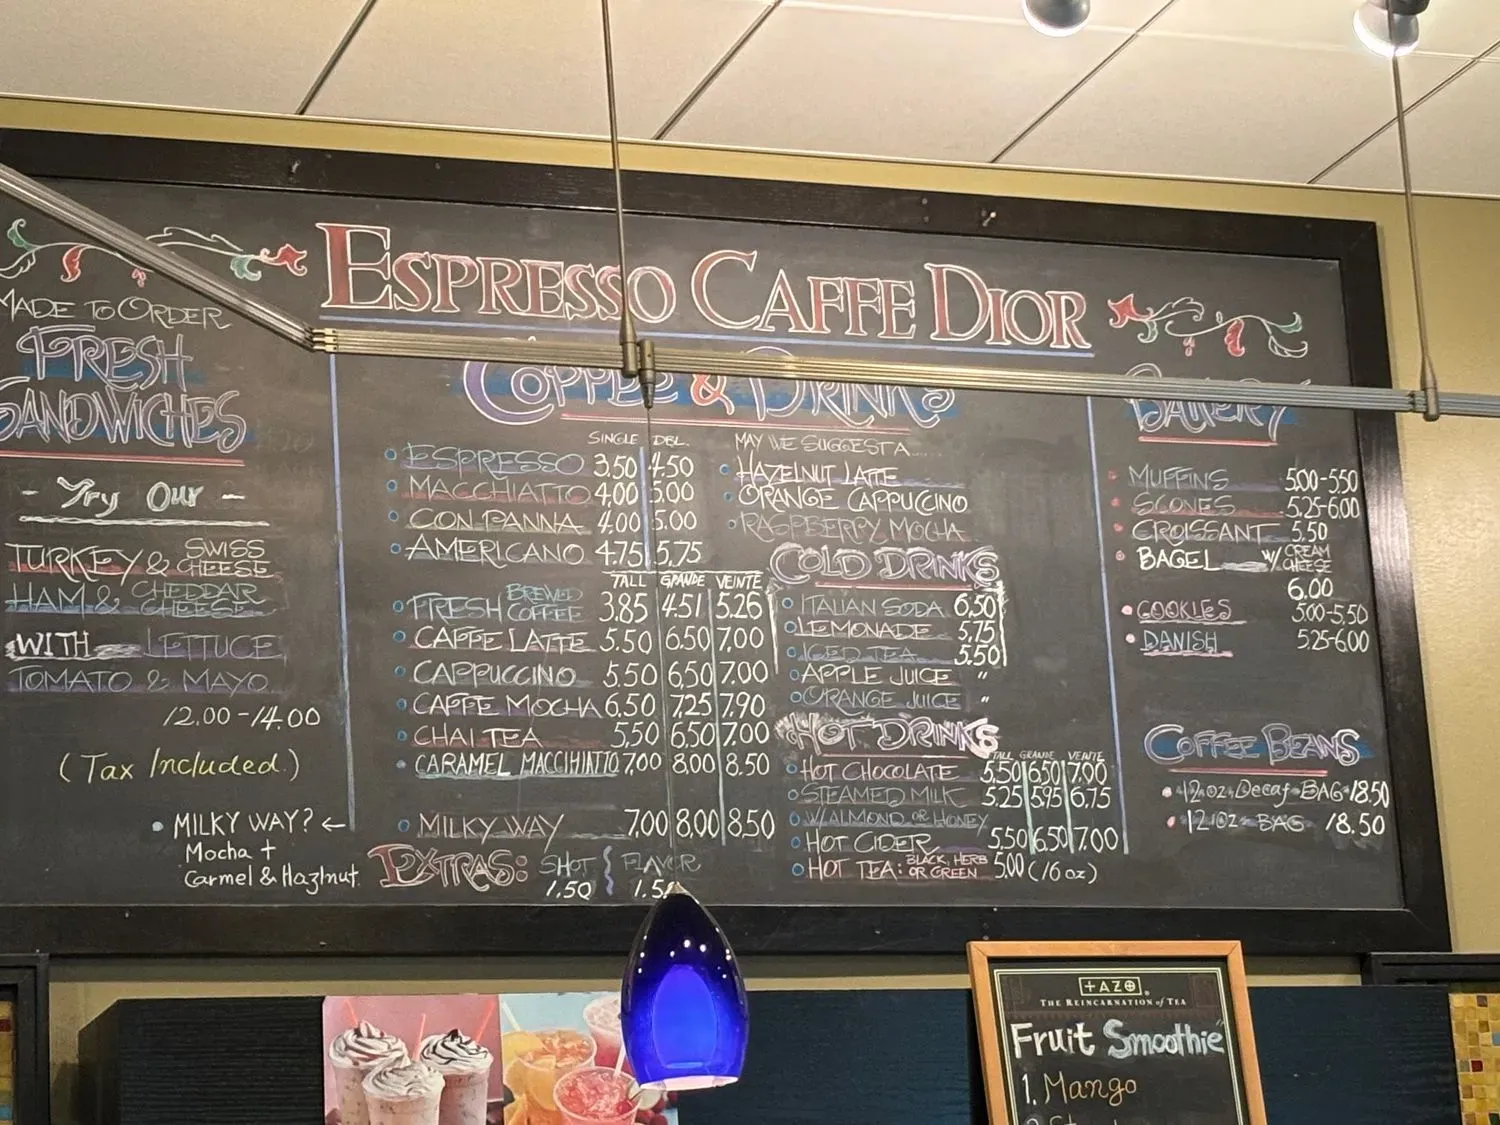 ESPRESSO CAFFE DIOR
MADE TO ORDER
FRESH
SANDWICHES
- Try Our -
TURKEY & SWISS CHEESE
HAM & CHEDDAR CHEESE
WITH LETTUCE
TOMATO & MAYO
12.00-14.00
(Tax Included.)
MILKY WAY? ←
Mocha +
Carmel & Hazlnut
COFFEE & DRINKS
SINGLE DBL.
ESPRESSO 3.50 4.50
MACCHIATTO 4.00 5.00
CON PANNA 4.00 5.00
AMERICANO 4.75 5.75
TALL GRANDE VEINTE
FRESH BREWED COFFEE 3.85 4.51 5.26
CAFFE LATTE 5.50 6.50 7.00
CAPPUCCINO 5.50 6.50 7.00
CAFFE MOCHA 6.50 7.25 7.90
CHAI TEA 5.50 6.50 7.00
CARAMEL MACCIHIATTO 7.00 8.00 8.50
MILKY WAY 7.00 8.00 8.50
EXTRAS: SHOT FLAVOR
1.50
MAY WE SUGGEST A....
HAZELNUT LATTE
ORANGE CAPPUCCINO
RASPBERRY MOCHA
COLD DRINKS
ITALIAN SODA 6.50
LEMONADE 5.75
ICED TEA 5.50
APPLE JUICE "
ORANGE JUICE "
HOT DRINKS
TALL GRANDE VEINTE
HOT CHOCOLATE 5.50 6.50 7.00
STEAMED MILK 5.25 5.95 6.75
W/ALMOND OR HONEY
HOT CIDER 5.50 6.50 7.00
HOT TEA: BLACK, HERB OR GREEN 5.00 (16 oz)
BAKERY
MUFFINS 5.00-5.50
SCONES 5.25-6.00
CROISSANT 5.50
BAGEL W/ CREAM CHEESE
6.00
COOKIES 5.00-5.50
DANISH 5.25-6.00
COFFEE BEANS
12 oz Decaf BAG 18.50
12 oz BAG 18.50
TAZO
THE REINCARNATION of TEA
Fruit Smoothie
1. Mango